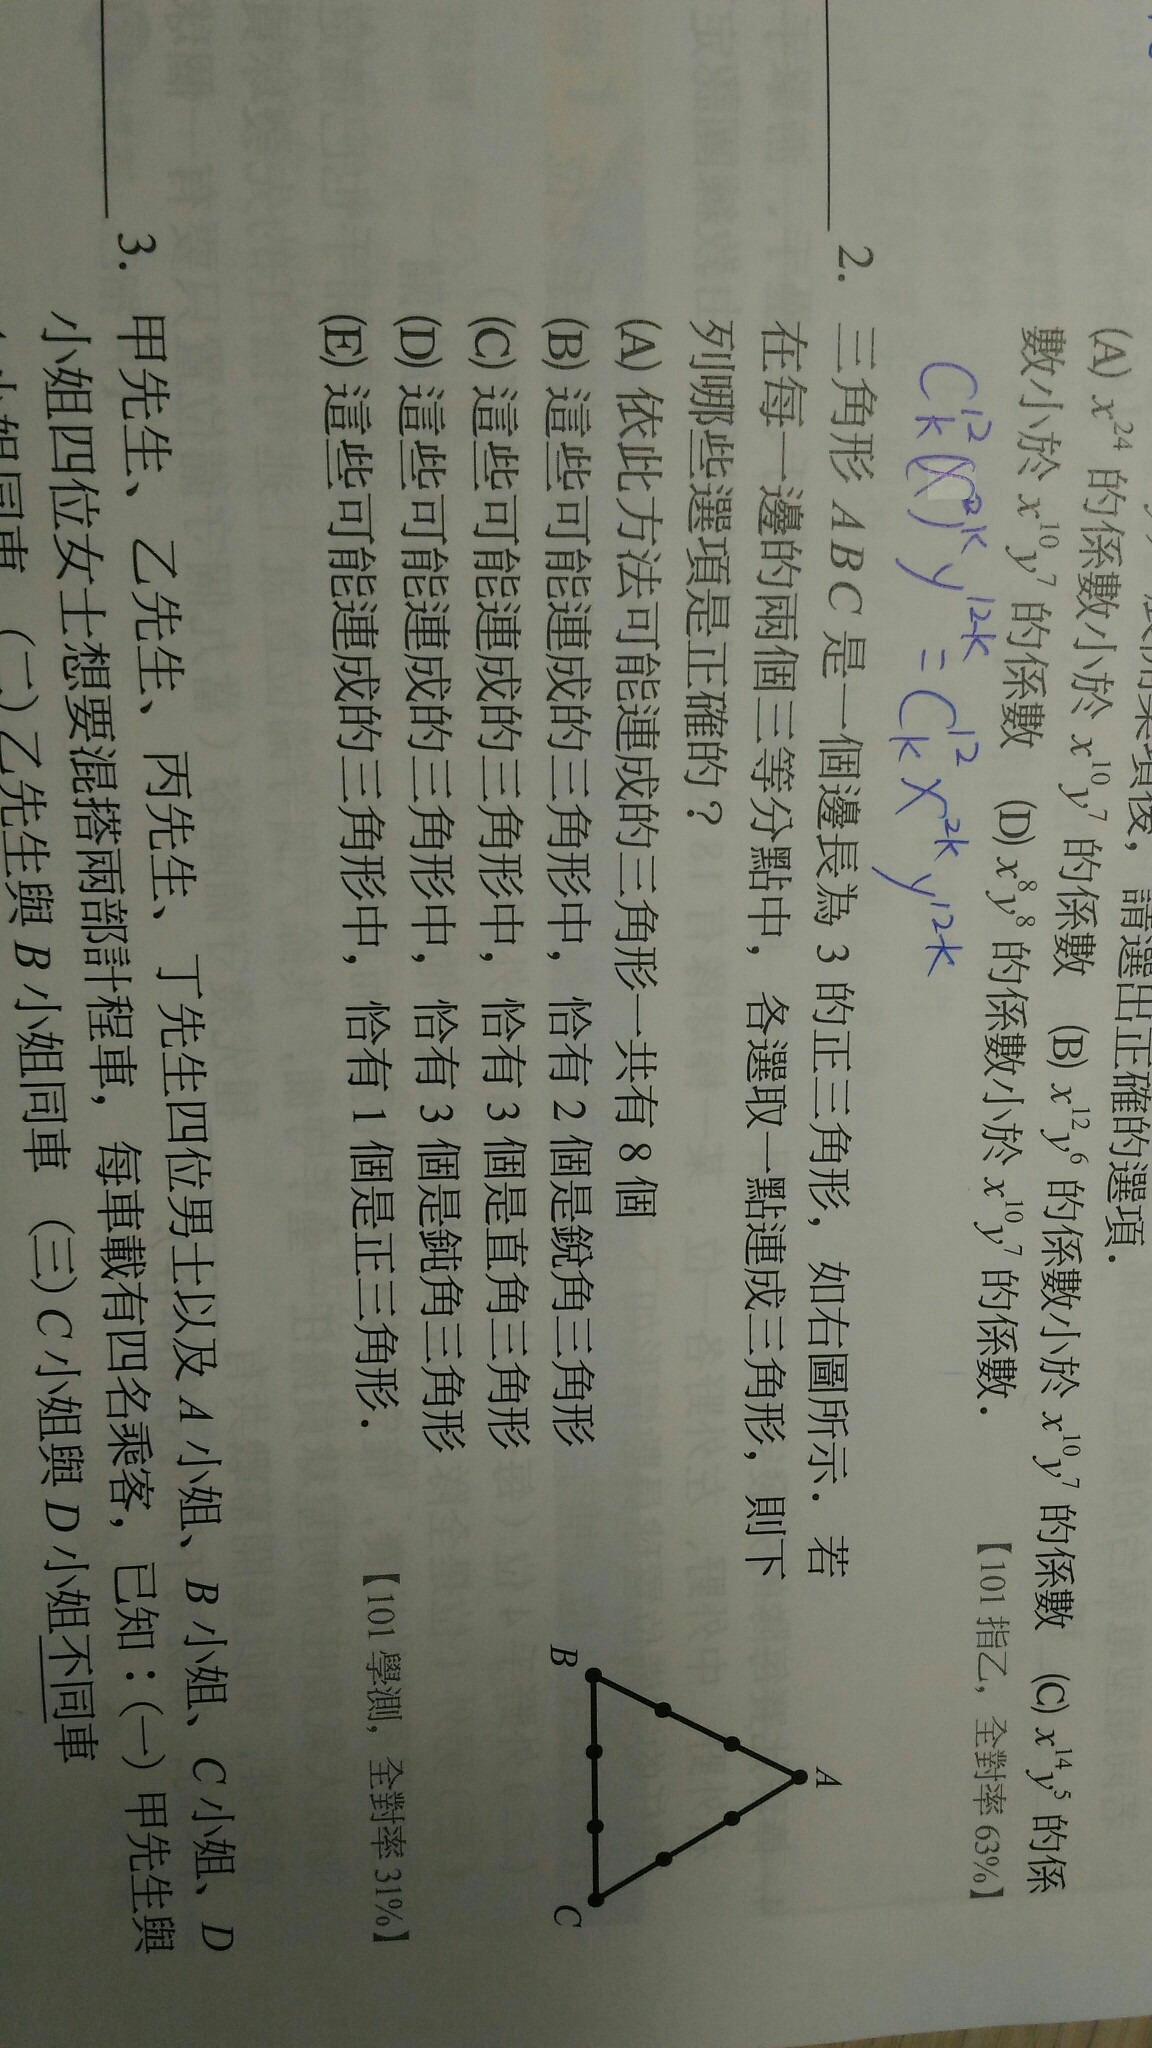 請選出正確的選項．
(A) x²⁴ 的係數小於 x¹⁰y⁷ 的係數　(B) x¹²y⁶ 的係數小於 x¹⁰y⁷ 的係數　(C) x¹⁴y⁵ 的係
數小於 x¹⁰y⁷ 的係數　(D) x⁸y⁸ 的係數小於 x¹⁰y⁷ 的係數．
【101 指乙，全對率 63%】
C¹²ₖ(x²)ᵏ y¹²⁻ᵏ = C¹²ₖ x²ᵏ y¹²⁻ᵏ
2. 三角形 ABC 是一個邊長為 3 的正三角形，如右圖所示．若
在每一邊的兩個三等分點中，各選取一點連成三角形，則下
列哪些選項是正確的？
(A) 依此方法可能連成的三角形一共有 8 個
(B) 這些可能連成的三角形中，恰有 2 個是銳角三角形
(C) 這些可能連成的三角形中，恰有 3 個是直角三角形
(D) 這些可能連成的三角形中，恰有 3 個是鈍角三角形
(E) 這些可能連成的三角形中，恰有 1 個是正三角形．
【101 學測，全對率 31%】
A
B
C
3. 甲先生、乙先生、丙先生、丁先生四位男士以及 A 小姐、B 小姐、C 小姐、D
小姐四位女士想要混搭兩部計程車，每車載有四名乘客，已知：(一) 甲先生與
小姐同車　(二) 乙先生與 B 小姐同車　(三) C 小姐與 D 小姐不同車